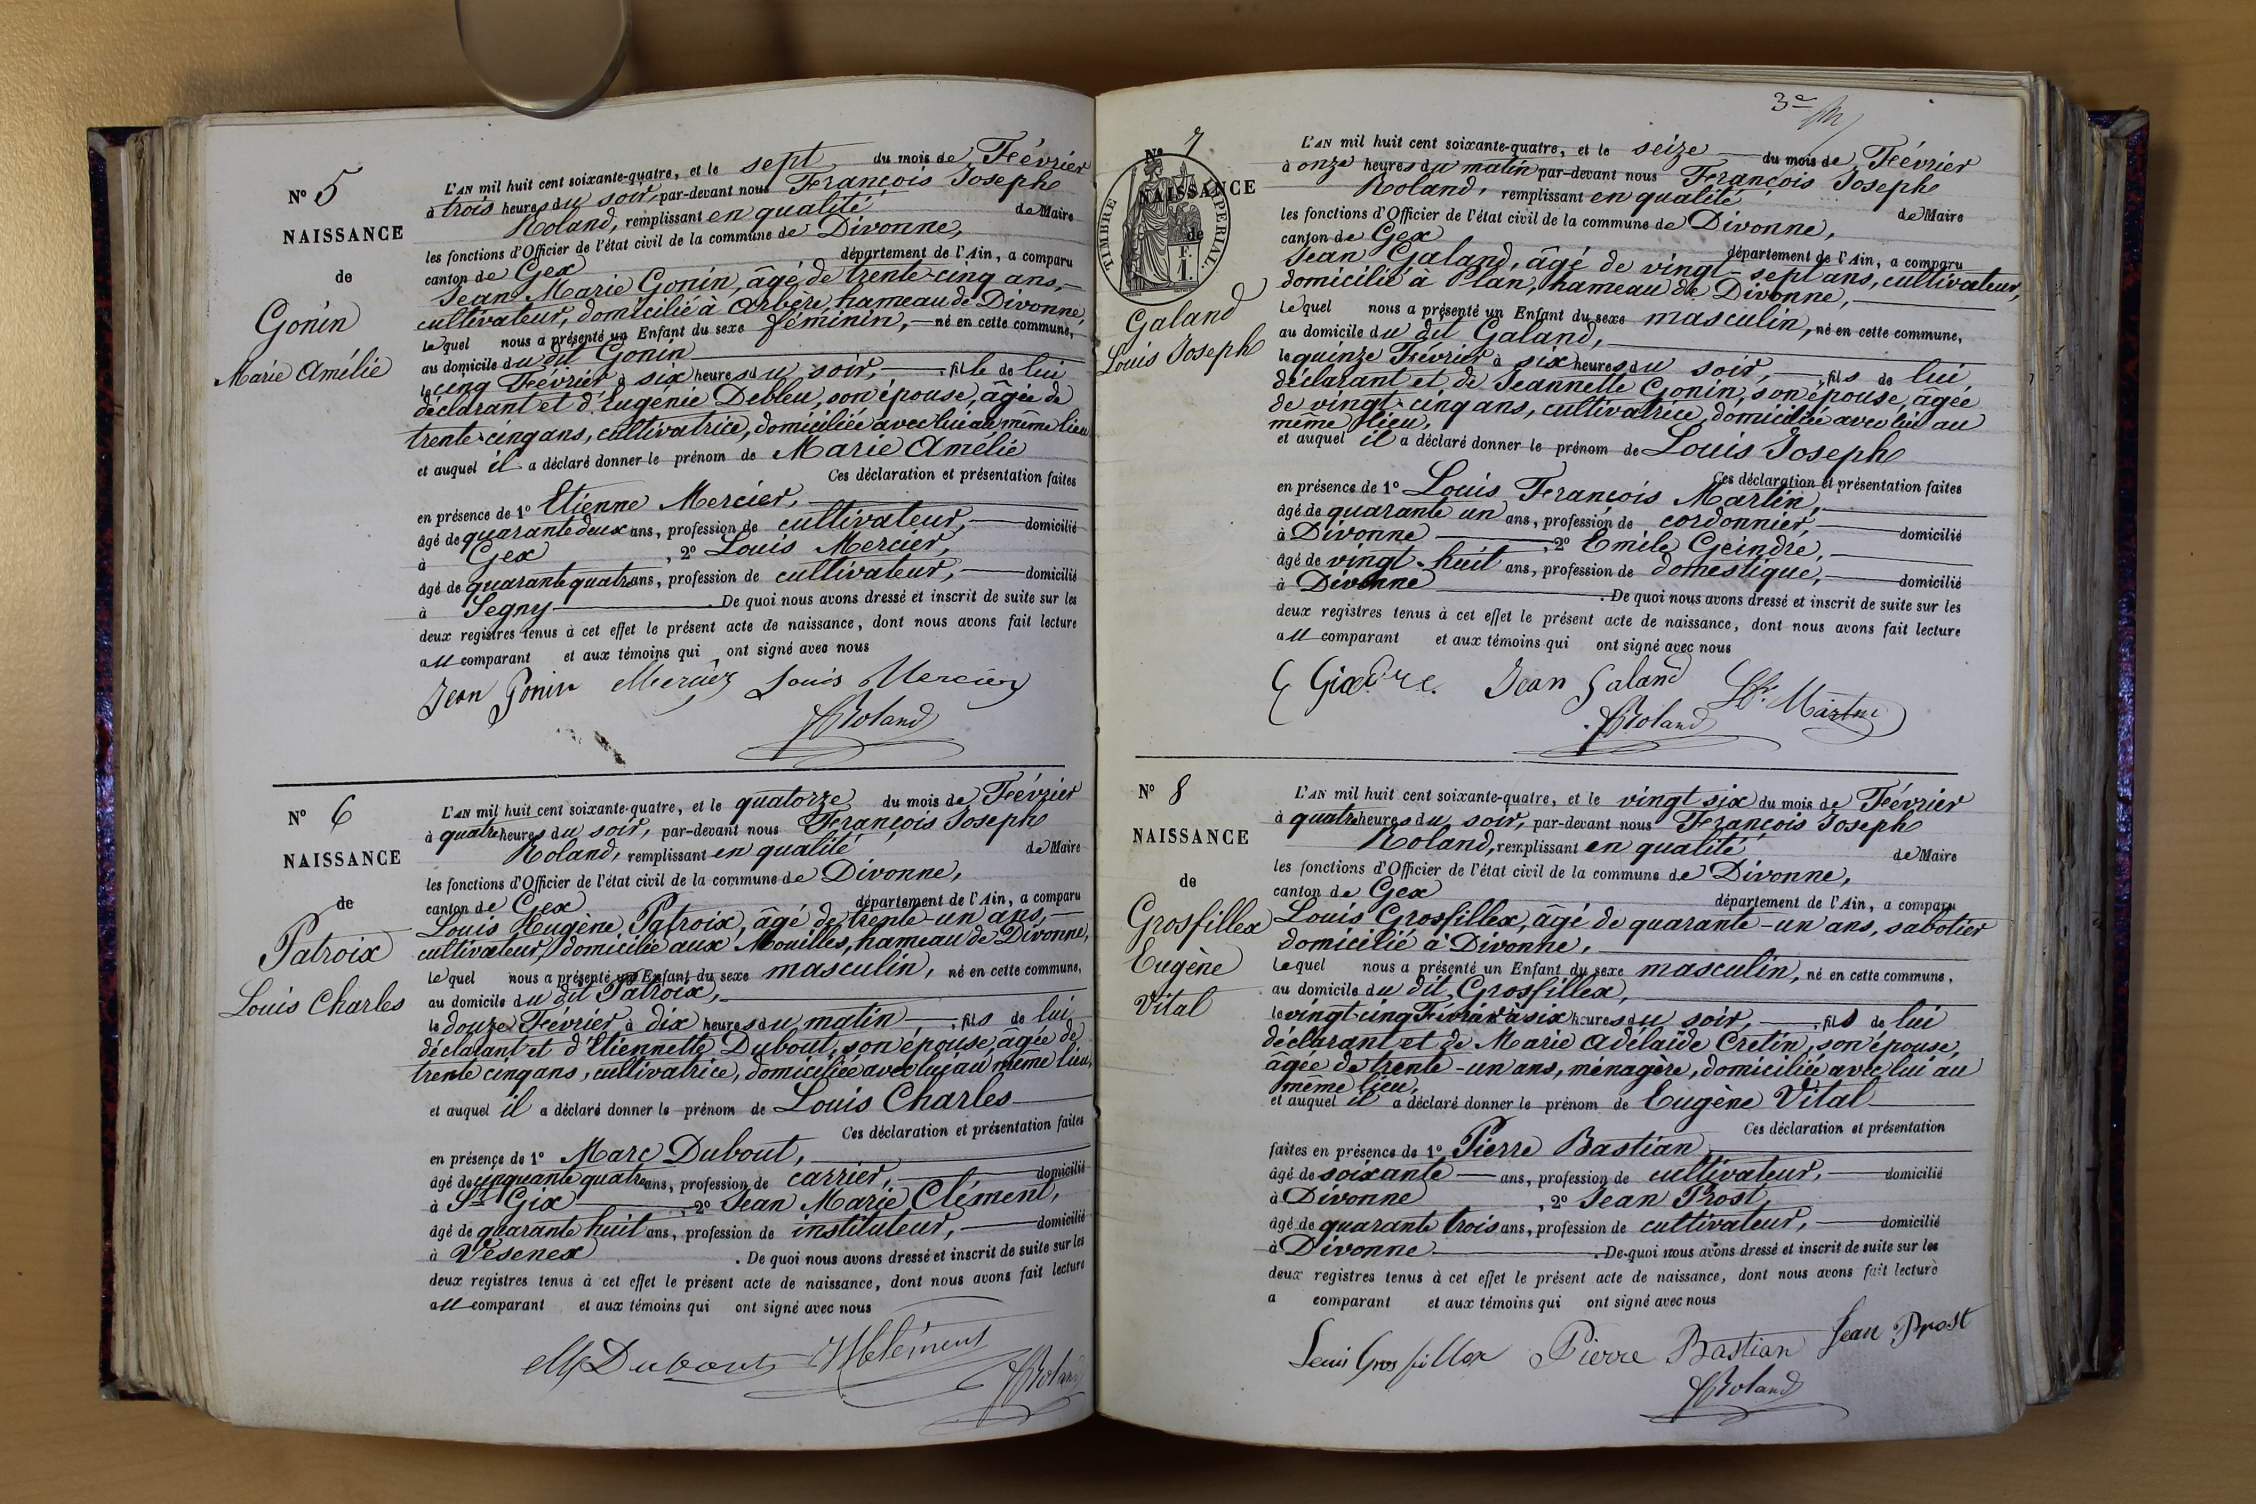 N° 5
NAISSANCE
de
Gonin
Marie Amélie
L'AN mil huit cent soixante-quatre, et le sept du mois de Février
à trois heures du soir, par-devant nous François Joseph
Roland, remplissant en qualité de Maire
les fonctions d'Officier de l'état civil de la commune de Divonne,
canton de Gex département de l'Ain, a comparu
Jean Marie Gonin, âgé de trente-cinq ans,
cultivateur, domicilié à Arbère, hameau de Divonne,
Lequel nous a présenté un Enfant du sexe féminin, né en cette commune,
au domicile du dit Gonin
le cinq Février à six heures du soir, fille de lui
déclarant et d'Eugénie Debleu, son épouse, âgée de
trente-cinq ans, cultivatrice, domiciliée avec lui au même lieu
et auquel il a déclaré donner le prénom de Marie Amélie
Ces déclaration et présentation faites
en présence de 1° Etienne Mercier,
âgé de quarante deux ans, profession de cultivateur, domicilié
à Gex, 2° Louis Mercier,
âgé de quarante quatre ans, profession de cultivateur, domicilié
à Segny. De quoi nous avons dressé et inscrit de suite sur les
deux registres tenus à cet effet le présent acte de naissance, dont nous avons fait lecture
au comparant et aux témoins qui ont signé avec nous
Jean Gonin EMercier Louis Mercier
FRoland
N° 6
NAISSANCE
de
Patroix
Louis Charles
L'AN mil huit cent soixante-quatre, et le quatorze du mois de Février
à quatre heures du soir, par-devant nous François Joseph
Roland, remplissant en qualité de Maire
les fonctions d'Officier de l'état civil de la commune de Divonne,
canton de Gex département de l'Ain, a comparu
Louis Eugène Patroix, âgé de trente-un ans,
cultivateur, domicilié aux Mouilles, hameau de Divonne,
Lequel nous a présenté un Enfant du sexe masculin, né en cette commune,
au domicile du dit Patroix,
le douze Février à dix heures du matin, fils de lui
déclarant et d'Etiennette Dubout, son épouse, âgée de
trente cinq ans, cultivatrice, domiciliée avec lui au même lieu,
et auquel il a déclaré donner le prénom de Louis Charles
Ces déclaration et présentation faites
en présence de 1° Marc Dubout,
âgé de cinquante quatre ans, profession de carrier, domicilié
à St Gix, 2° Jean Marie Clément,
âgé de quarante huit ans, profession de instituteur, domicilié
à Vésenex. De quoi nous avons dressé et inscrit de suite sur les
deux registres tenus à cet effet le présent acte de naissance, dont nous avons fait lecture
au comparant et aux témoins qui ont signé avec nous
M Dubout JMClément
FRoland
3e
N° 7
NAISSANCE
de
TIMBRE IMPERIAL
1 F.
Galand
Louis Joseph
L'AN mil huit cent soixante-quatre, et le seize du mois de Février
à onze heures du matin par-devant nous François Joseph
Roland, remplissant en qualité de Maire
les fonctions d'Officier de l'état civil de la commune de Divonne,
canton de Gex département de l'Ain, a comparu
Jean Galand, âgé de vingt-sept ans, cultivateur,
domicilié à Plan, hameau de Divonne,
Lequel nous a présenté un Enfant du sexe masculin, né en cette commune,
au domicile du dit Galand,
le quinze Février à six heures du soir, fils de lui
déclarant et de Jeannette Gonin, son épouse, âgée
de vingt-cinq ans, cultivatrice, domiciliée avec lui au
même lieu,
et auquel il a déclaré donner le prénom de Louis Joseph
Ces déclaration et présentation faites
en présence de 1° Louis François Martin,
âgé de quarante un ans, profession de cordonnier, domicilié
à Divonne, 2° Emile Geindre,
âgé de vingt-huit ans, profession de domestique, domicilié
à Divonne. De quoi nous avons dressé et inscrit de suite sur les
deux registres tenus à cet effet le présent acte de naissance, dont nous avons fait lecture
au comparant et aux témoins qui ont signé avec nous
Jean Galand Ls Fs Martin
FRoland
N° 8
NAISSANCE
de
Grosfillex
Eugène
Vital
L'AN mil huit cent soixante-quatre, et le vingt six du mois de Février
à quatre heures du soir, par-devant nous François Joseph
Roland, remplissant en qualité de Maire
les fonctions d'Officier de l'état civil de la commune de Divonne,
canton de Gex département de l'Ain, a comparu
Louis Grosfillex, âgé de quarante-un ans, sabotier
domicilié à Divonne,
Lequel nous a présenté un Enfant du sexe masculin, né en cette commune,
au domicile du dit Grosfillex,
le vingt-cinq Février à six heures du soir, fils de lui
déclarant et de Marie Adélaïde Crétin, son épouse,
âgée de trente-un ans, ménagère, domiciliée avec lui au
même lieu,
et auquel il a déclaré donner le prénom de Eugène Vital
Ces déclaration et présentation
faites en présence de 1° Pierre Bastian
âgé de soixante ans, profession de cultivateur, domicilié
à Divonne, 2° Jean Prost,
âgé de quarante trois ans, profession de cultivateur, domicilié
à Divonne. De quoi nous avons dressé et inscrit de suite sur les
deux registres tenus à cet effet le présent acte de naissance, dont nous avons fait lecture
a comparant et aux témoins qui ont signé avec nous
Louis Gros fillex Pierre Bastian Jean Prost
FRoland